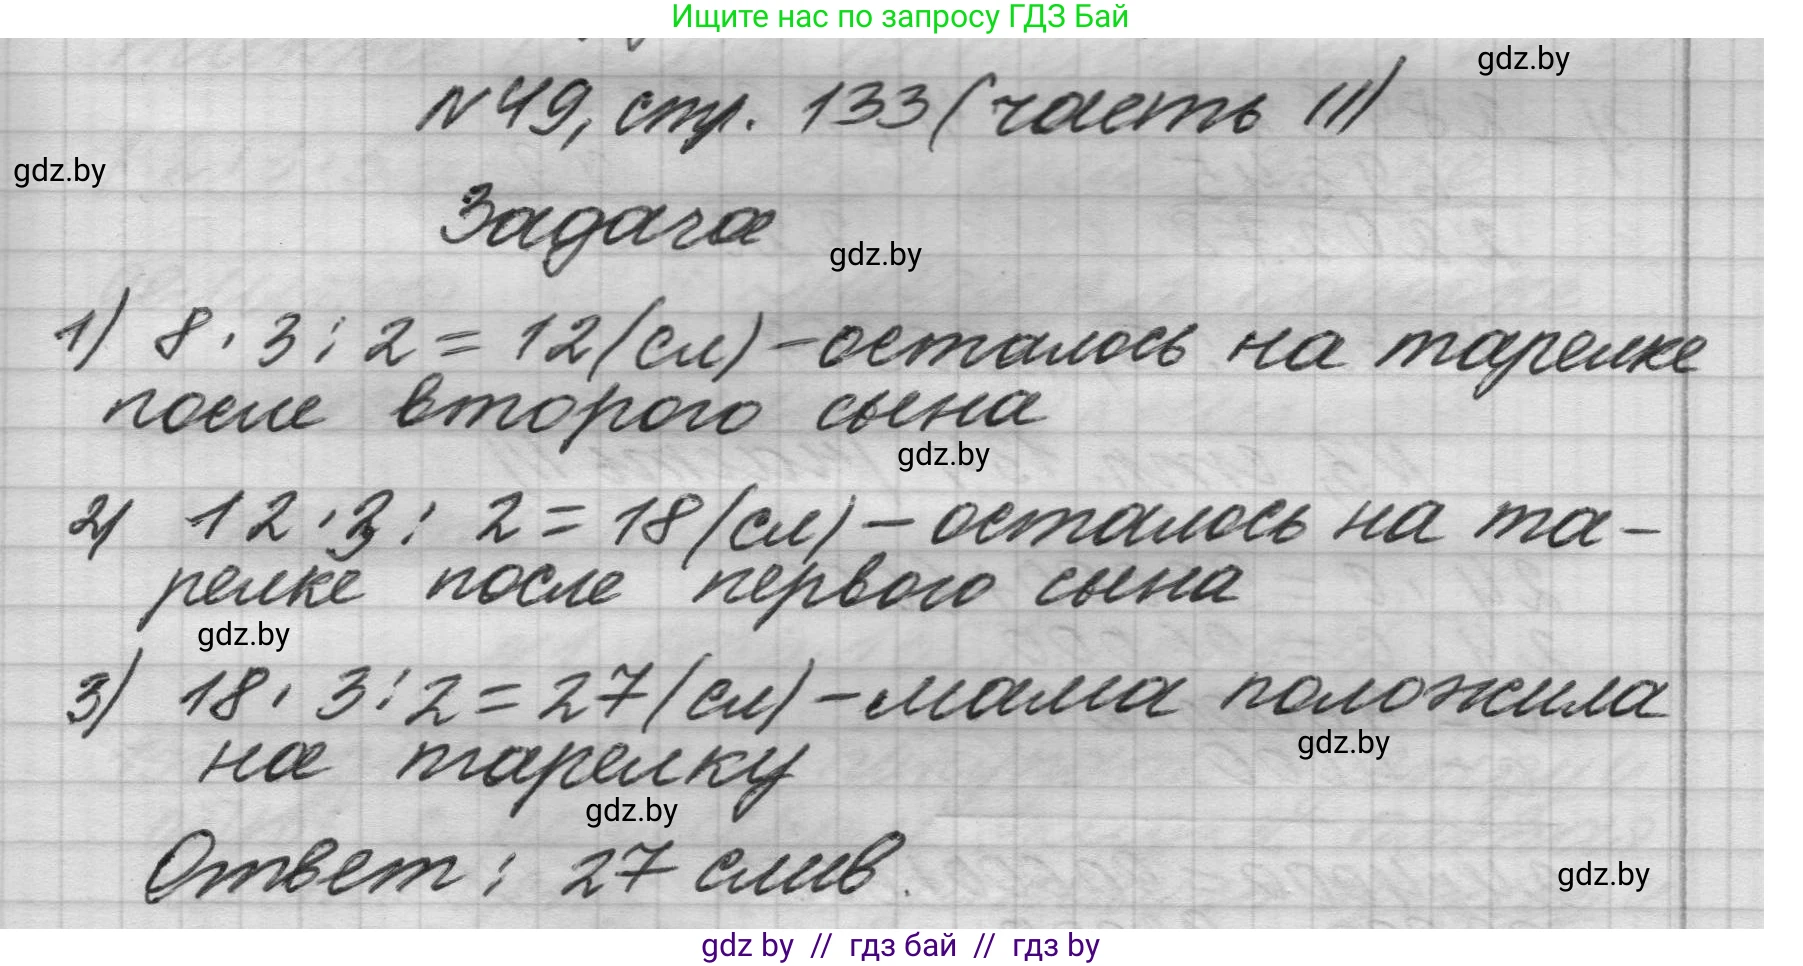 Ищите нас по запросу ГДЗ Бай
gdz.by
№49, стр. 133 (часть III)
gdz.by
Задача
gdz.by
1) 8 · 3 : 2 = 12 (сл) – осталось на тарелке
после второго сына
gdz.by
2) 12 · 3 : 2 = 18 (сл) – осталось на та-
релке после первого сына
gdz.by
3) 18 · 3 : 2 = 27 (сл) – мама положила
gdz.by
на тарелку
gdz.by
Ответ : 27 слив.
gdz.by
gdz by // гдз бай // гдз by